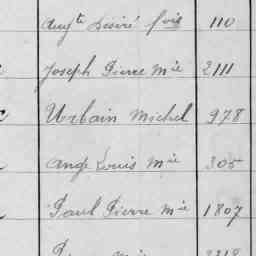 Augte Désiré fois 110
Joseph Pierre Mie 2111
Urbain Michel 978
Ange Louis Mie 305
Paul Pierre Mie 1807